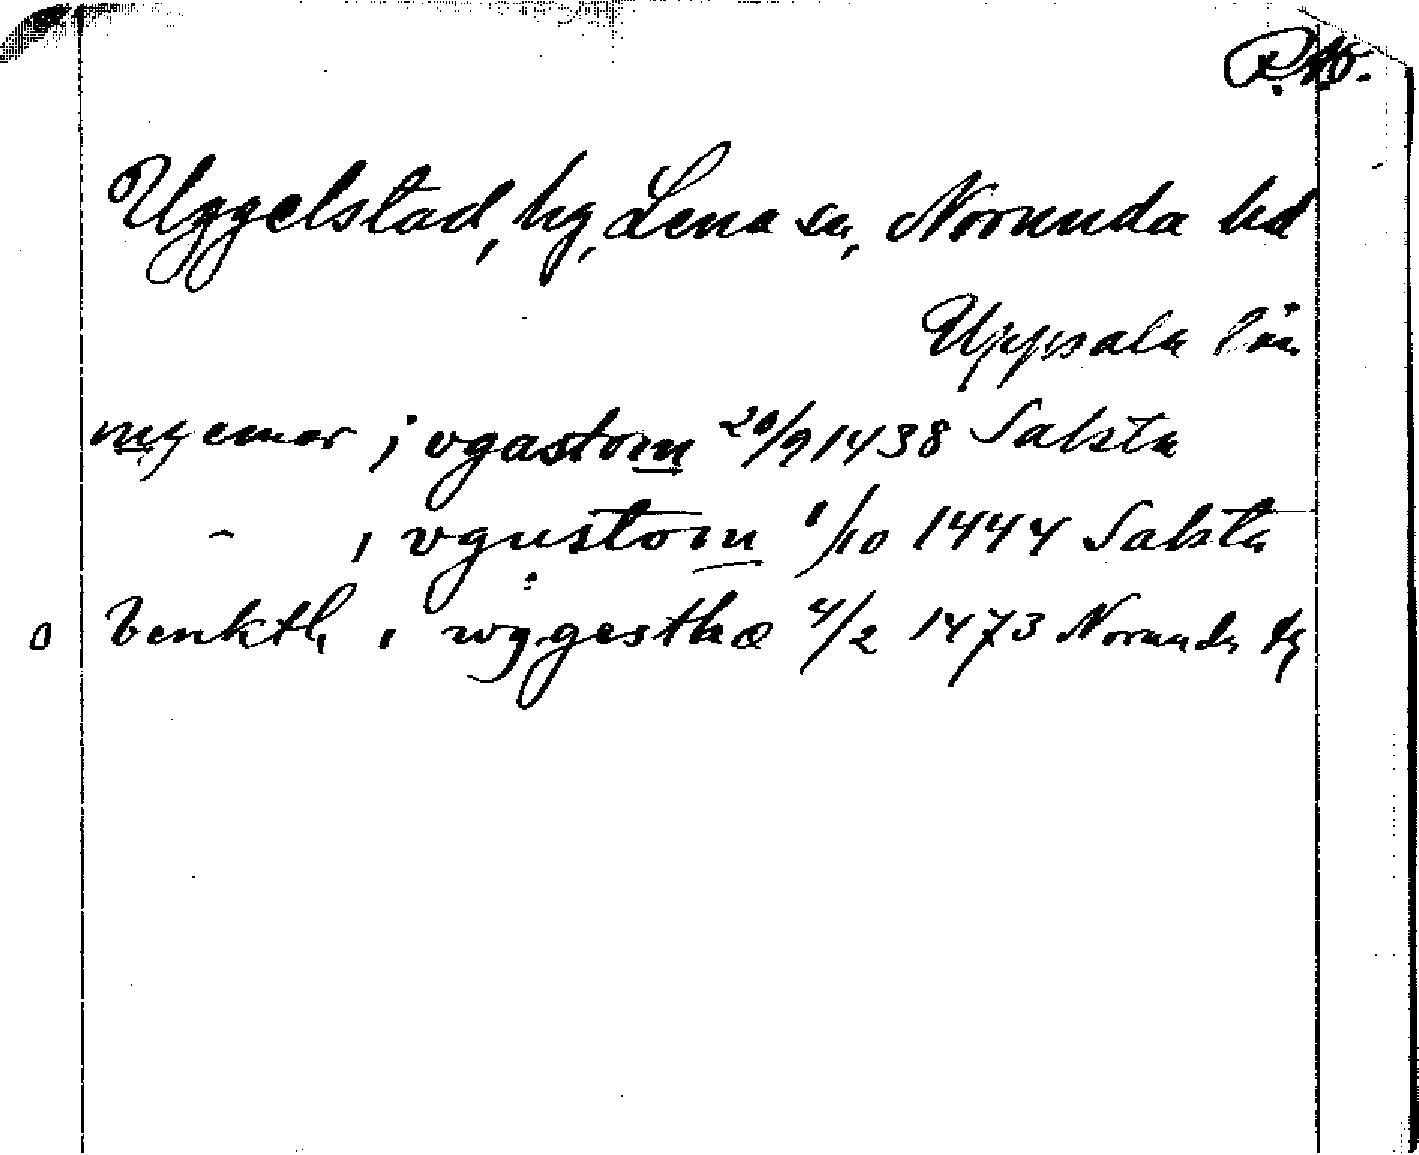 Uggelstad, by, Lena sn, Norunda hd
Uppsala län
ingemar j vgastom 20/9 1438 Salsta
- i vgustom 1/10 1444 Salsta
o benkth i wggesthæ 4/2 1473 Norunda